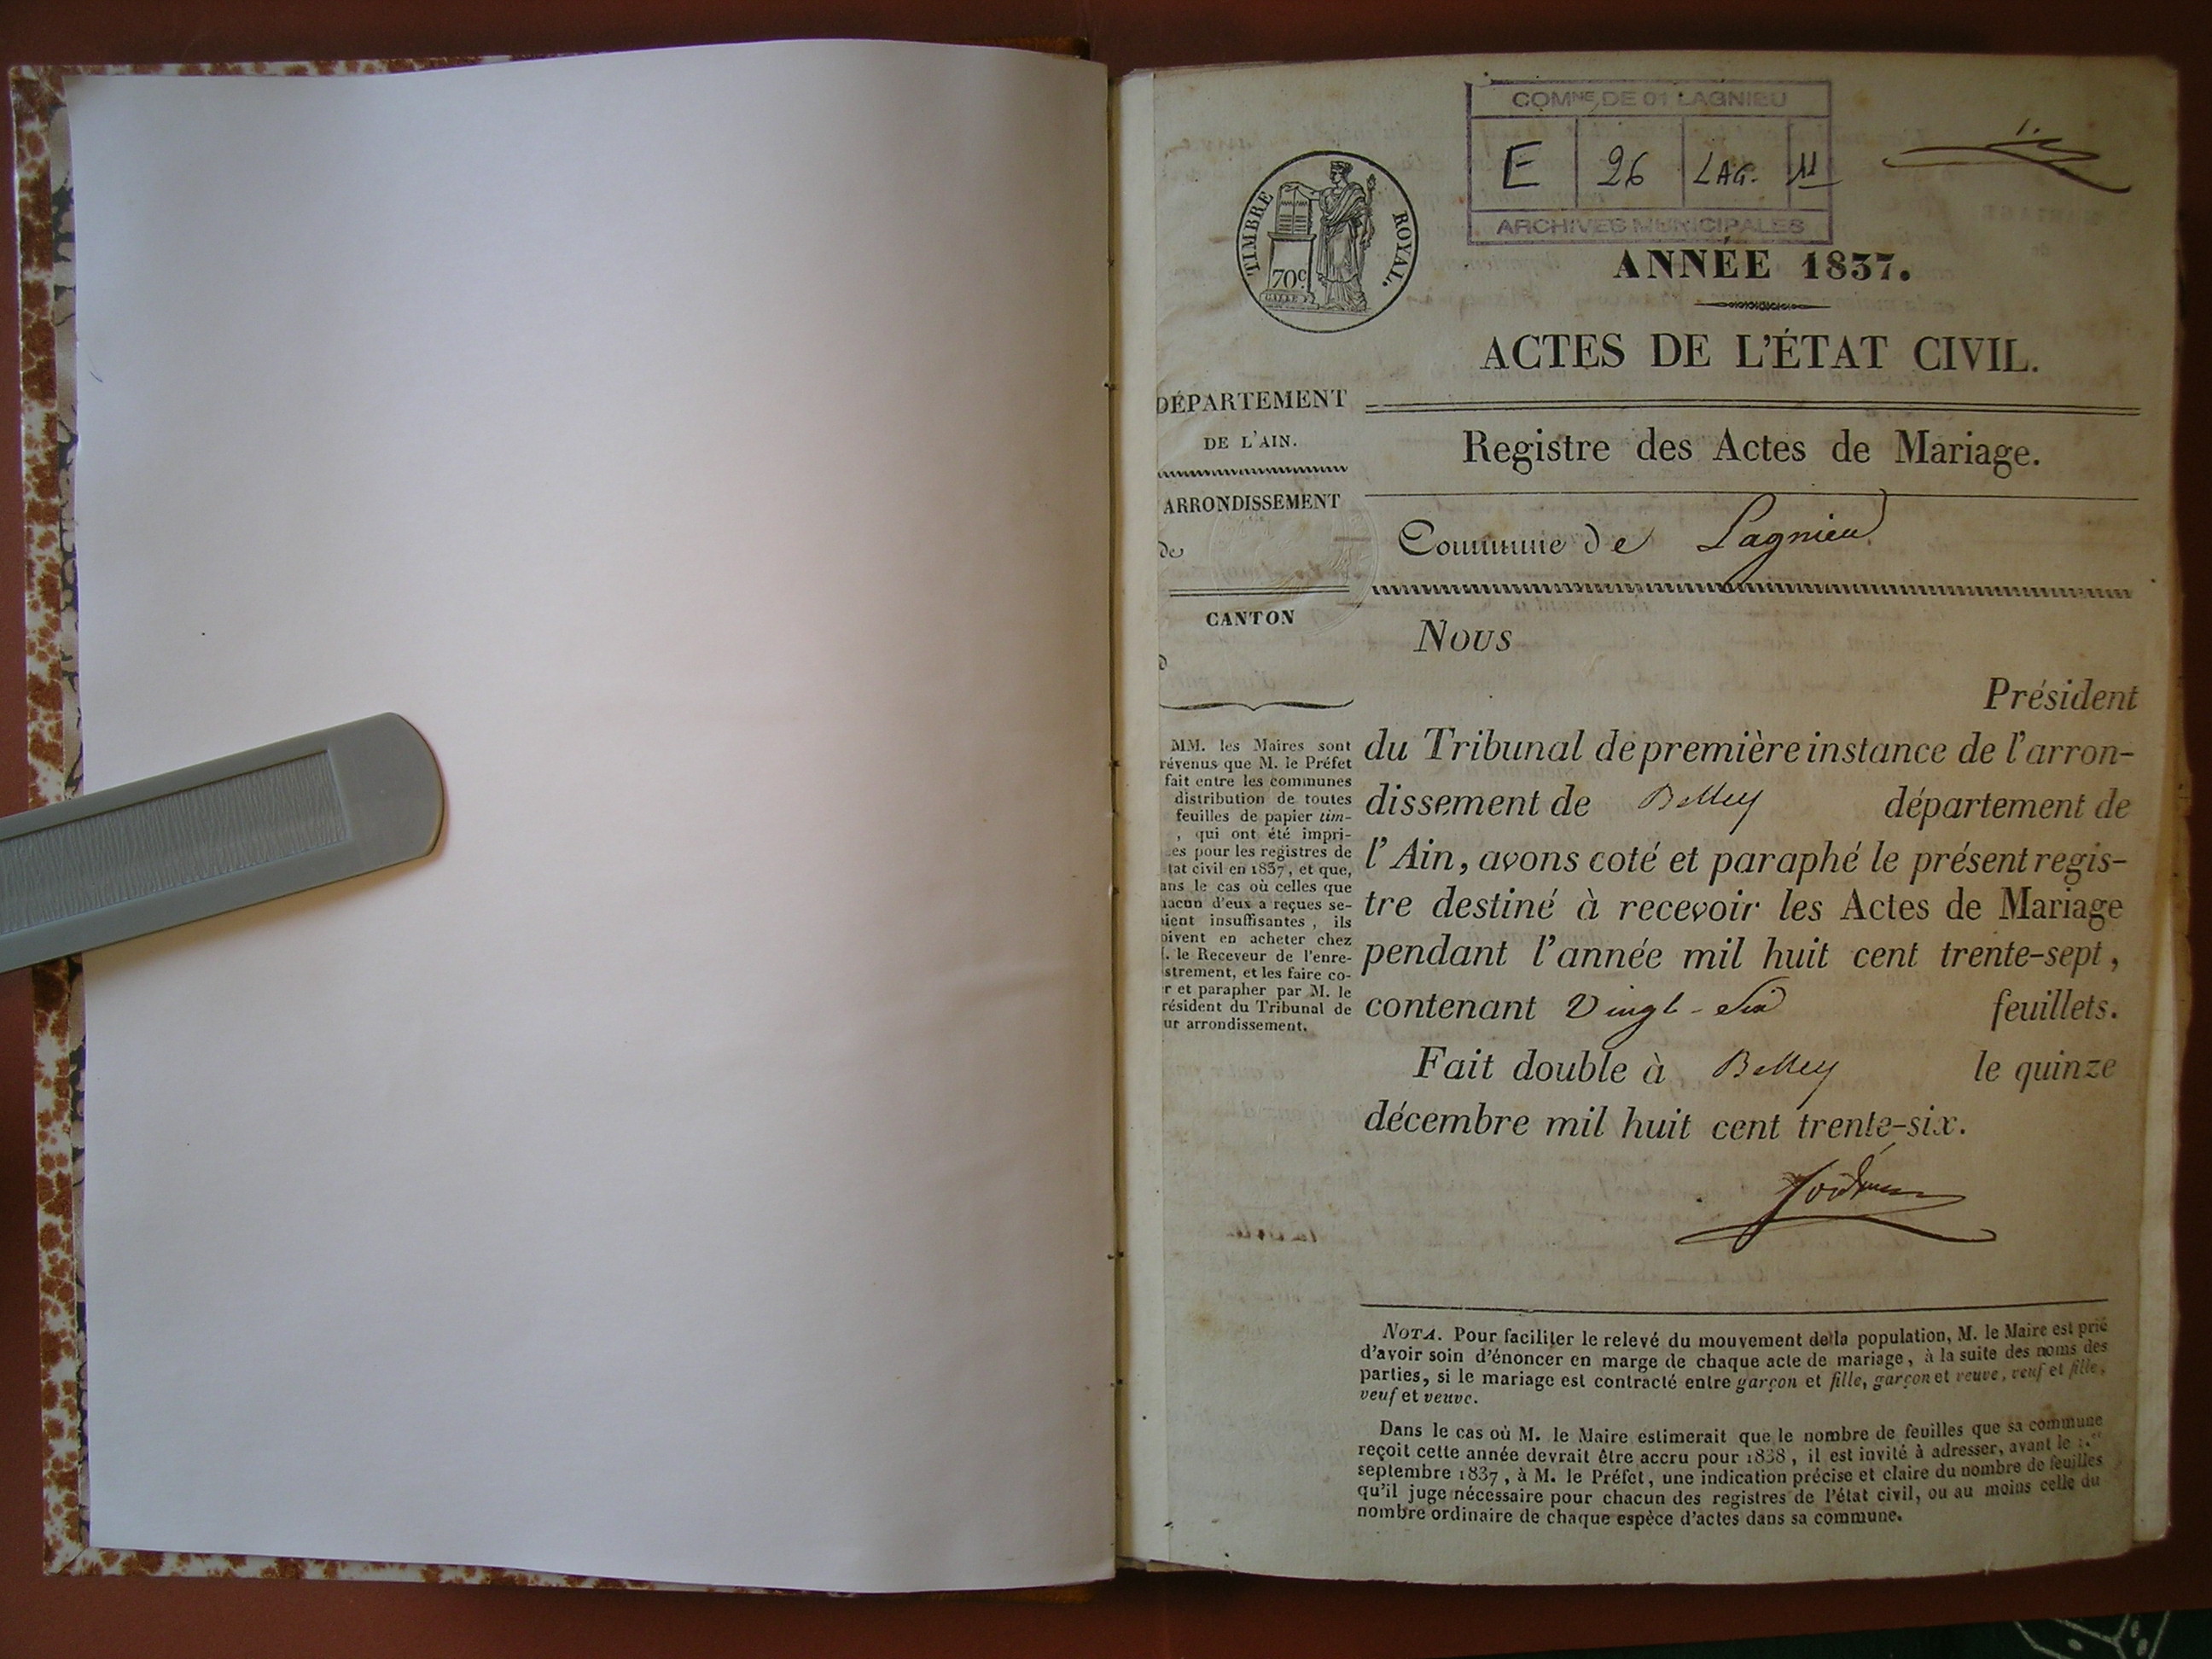 COMNE DE 01 LAGNIEU
E 26 LAG. 11
ARCHIVES MUNICIPALES
1.
TIMBRE ROYAL.
70c
GALLE F.
ANNÉE 1837.
ACTES DE L'ÉTAT CIVIL.
DÉPARTEMENT
DE L'AIN.
ARRONDISSEMENT
de
CANTON
d
MM. les Maires sont
révenus que M. le Préfet
fait entre les communes
distribution de toutes
feuilles de papier tim-
, qui ont été impri-
es pour les registres de
tat civil en 1837, et que,
ans le cas où celles que
hacun d'eux a reçues se-
aient insuffisantes, ils
oivent en acheter chez
. le Receveur de l'enre-
strement, et les faire co-
r et parapher par M. le
résident du Tribunal de
ur arrondissement.
Registre des Actes de Mariage.
Commune de Lagnieu
Nous
Président
du Tribunal de première instance de l'arron-
dissement de Belley département de
l'Ain, avons coté et paraphé le présent regis-
tre destiné à recevoir les Actes de Mariage
pendant l'année mil huit cent trente-sept,
contenant Vingt-Six feuillets.
Fait double à Belley le quinze
décembre mil huit cent trente-six.
NOTA. Pour faciliter le relevé du mouvement de la population, M. le Maire est prié
d'avoir soin d'énoncer en marge de chaque acte de mariage, à la suite des noms des
parties, si le mariage est contracté entre garçon et fille, garçon et veuve, veuf et fille,
veuf et veuve.
Dans le cas où M. le Maire estimerait que le nombre de feuilles que sa commune
reçoit cette année devrait être accru pour 1838, il est invité à adresser, avant le 1.er
septembre 1837, à M. le Préfet, une indication précise et claire du nombre de feuilles
qu'il juge nécessaire pour chacun des registres de l'état civil, ou au moins celle du
nombre ordinaire de chaque espèce d'actes dans sa commune.